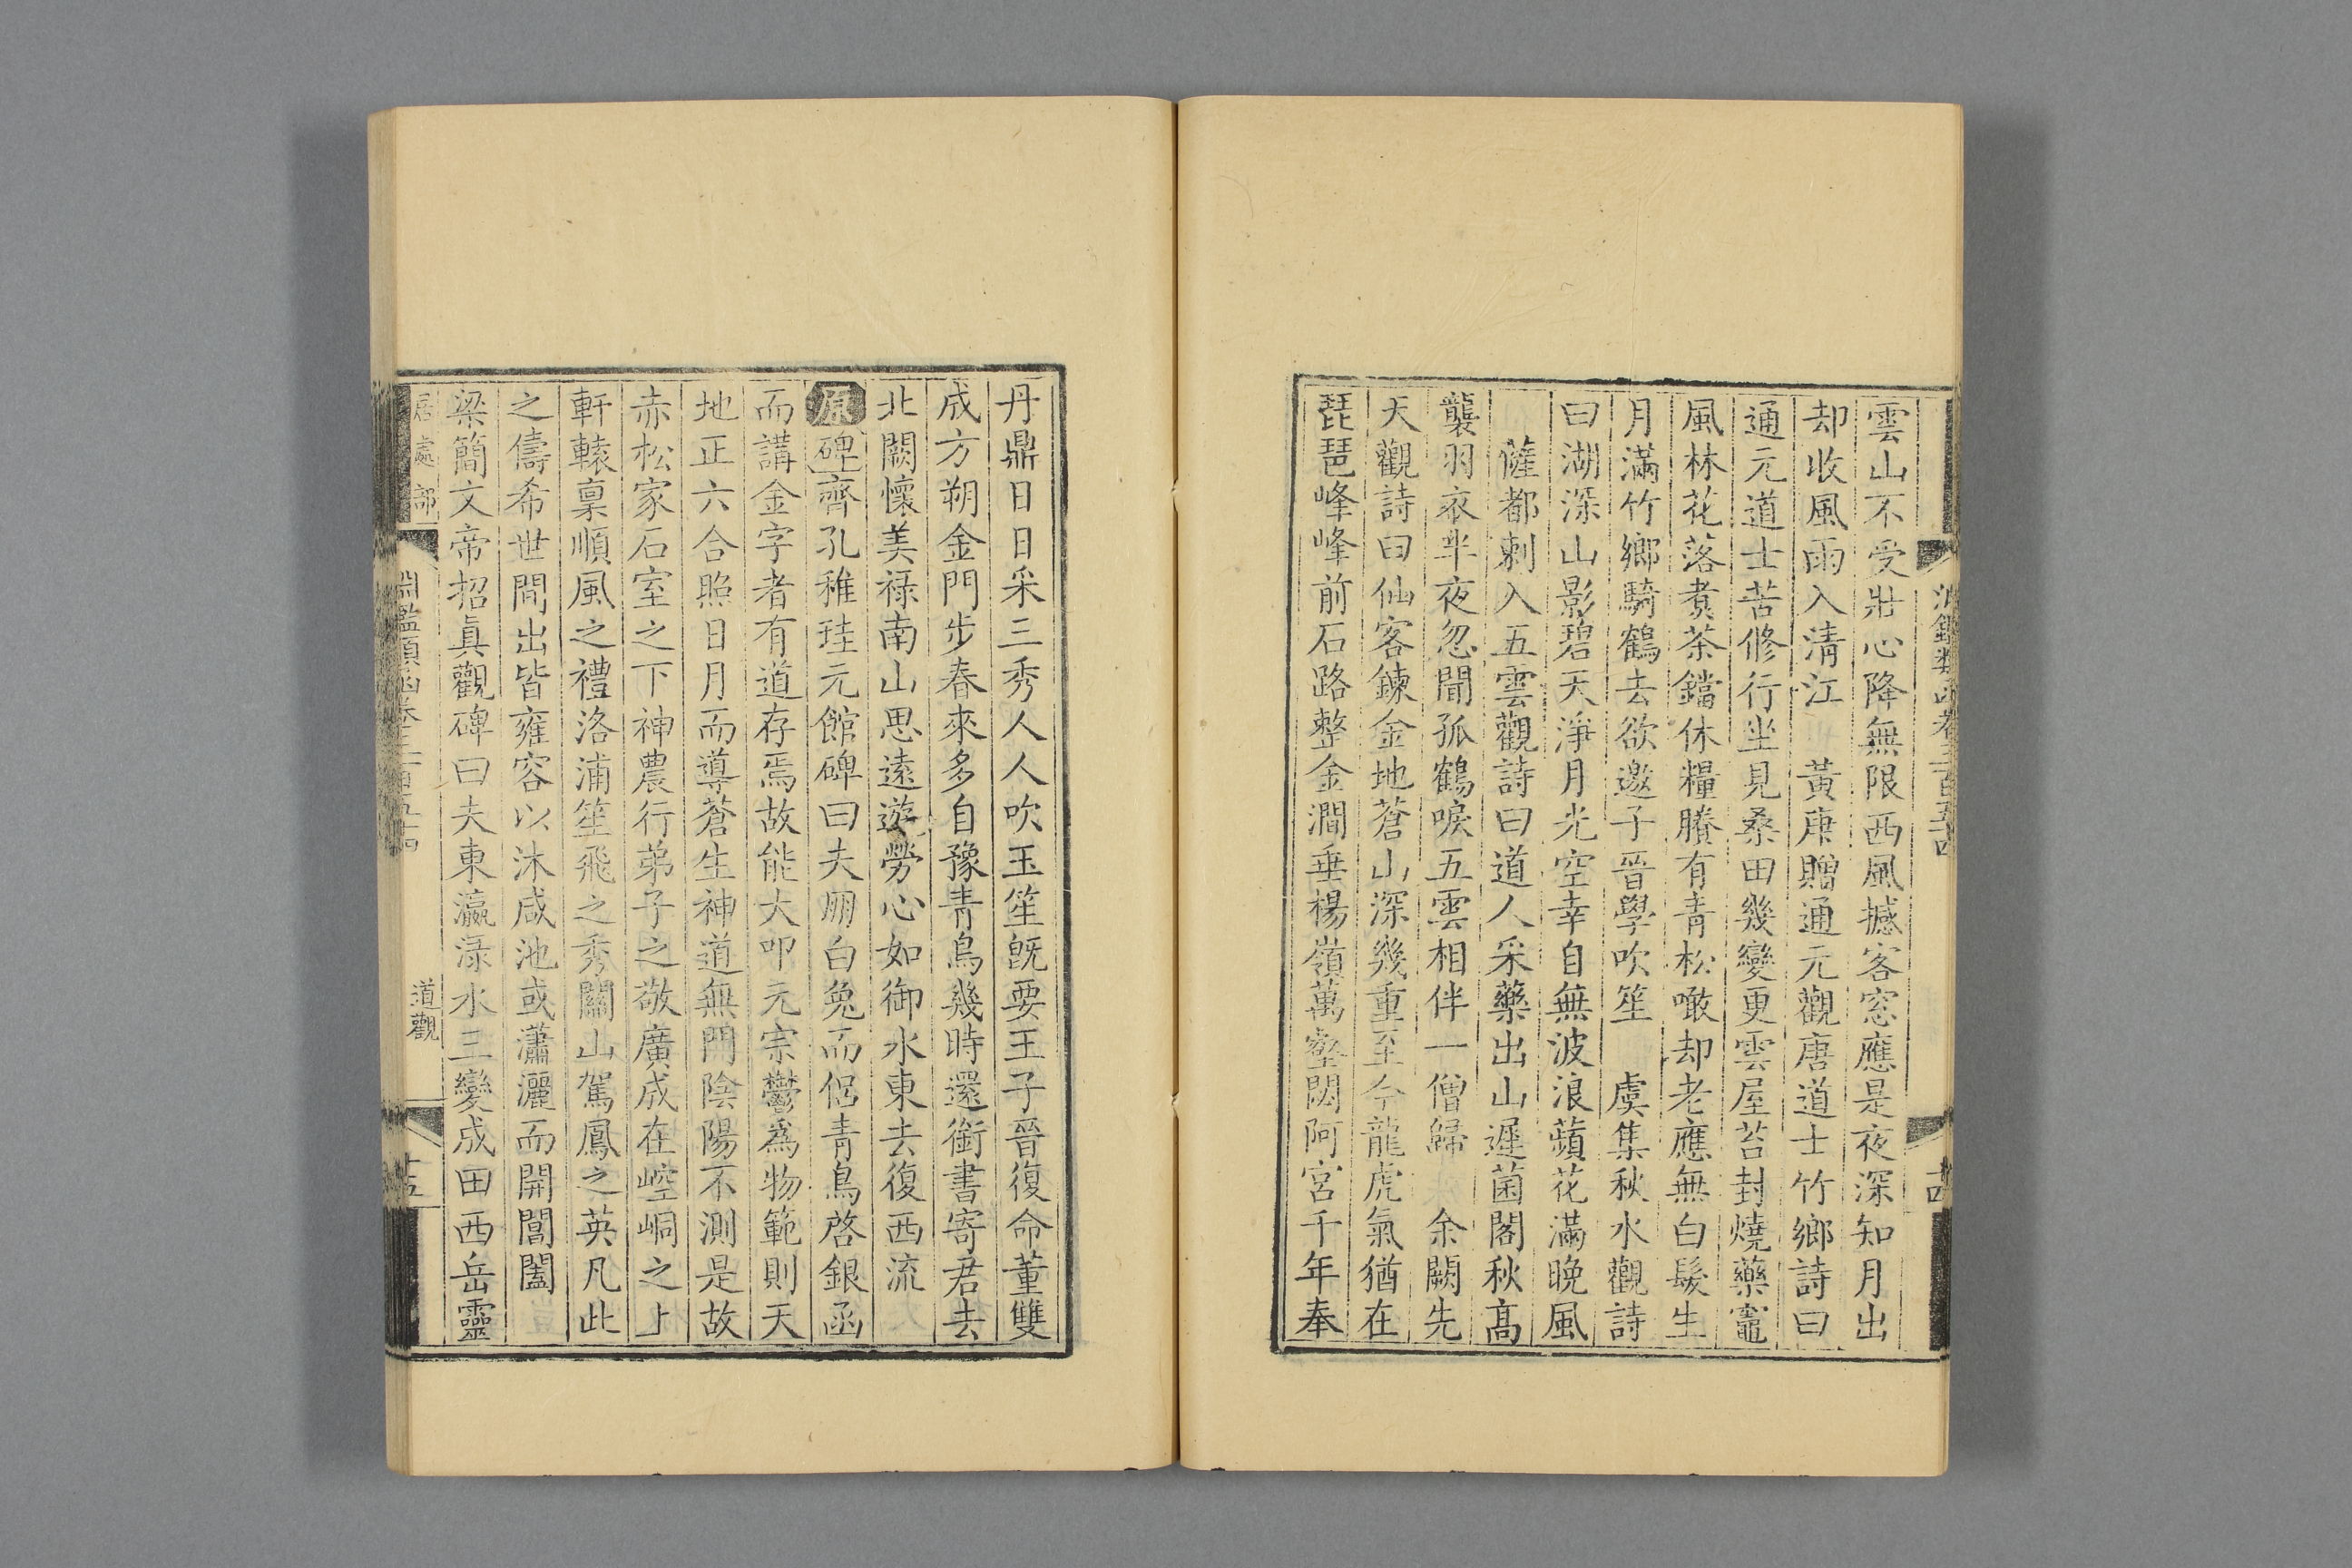 雲山不受壯心降無限西風撼客窓應是夜深知月出
却收風雨入淸江　黃庚贈通元觀唐道士竹鄉詩曰
通元道士苦修行坐見桑田幾變更雲屋苔封燒藥竈
風林花落煑茶鐺休糧賸有靑松噉却老應無白髮生
月滿竹鄉騎鶴去欲邀子晉學吹笙　虞集秋水觀詩
曰湖深山影碧天淨月光空幸自無波浪蘋花滿晚風
薩都剌入五雲觀詩曰道人采藥出山遲菌閣秋高
襲羽衣半夜忽聞孤鶴唳五雲相伴一僧歸　余闕先
天觀詩曰仙客鍊金地蒼山深幾重至今龍虎氣猶在
琵琶峰峰前石路整金澗垂楊嶺萬壑閟阿宮千年奉
丹鼎日日采三秀人人吹玉笙旣要王子晉復命董雙
成方朔金門步春來多自豫靑鳥幾時還銜書寄君去
北闕懷美祿南山思遠遊勞心如御水東去復西流
原碑齊孔稚珪元館碑曰夫朋白兔而侶靑鳥啓銀函
而講金字者有道存焉故能大叩元宗鬱爲物範則天
地正六合照日月而導蒼生神道無門陰陽不測是故
赤松家石室之下神農行弟子之敬廣成在崆峒之上
軒轅稟順風之禮洛浦笙飛之秀關山駕鳳之英凡此
之儔希世間出皆雍容以沐咸池或瀟灑而開閶闔
梁簡文帝招眞觀碑曰夫東瀛淥水三變成田西岳靈
居處部
淵鑑類函卷三百五十四
道觀
十五